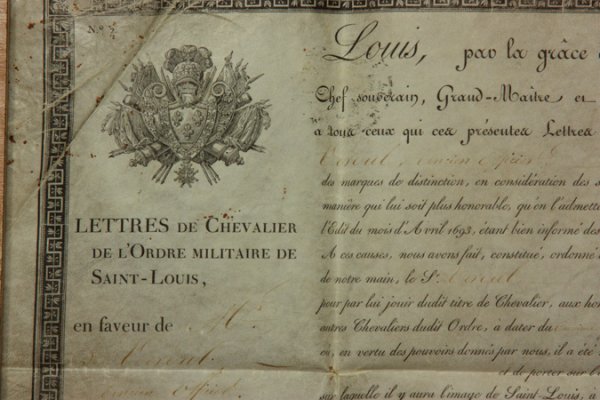 N.º
LETTRES DE CHEVALIER
DE L'ORDRE MILITAIRE DE
SAINT-LOUIS,
en faveur de M.r
Louis, par la grâce
Chef souverain, Grand-Maître et
à tous ceux qui ces présentes Lettres
ancien officier
des marques de distinction, en considération des
manière qui lui soit plus honorable, qu'en l'admett
l'Edit du mois d'Avril 1693, étant bien informé des
A ces causes, nous avons fait, constitué, ordonné
de notre main, le S.r
pour par lui jouir dudit titre de Chevalier, aux hon
autres Chevaliers dudit Ordre, à dater du
en vertu des pouvoirs donnés par nous, il a été
et de porter sur
sur laquelle il y aura l'image de Saint-Louis, à